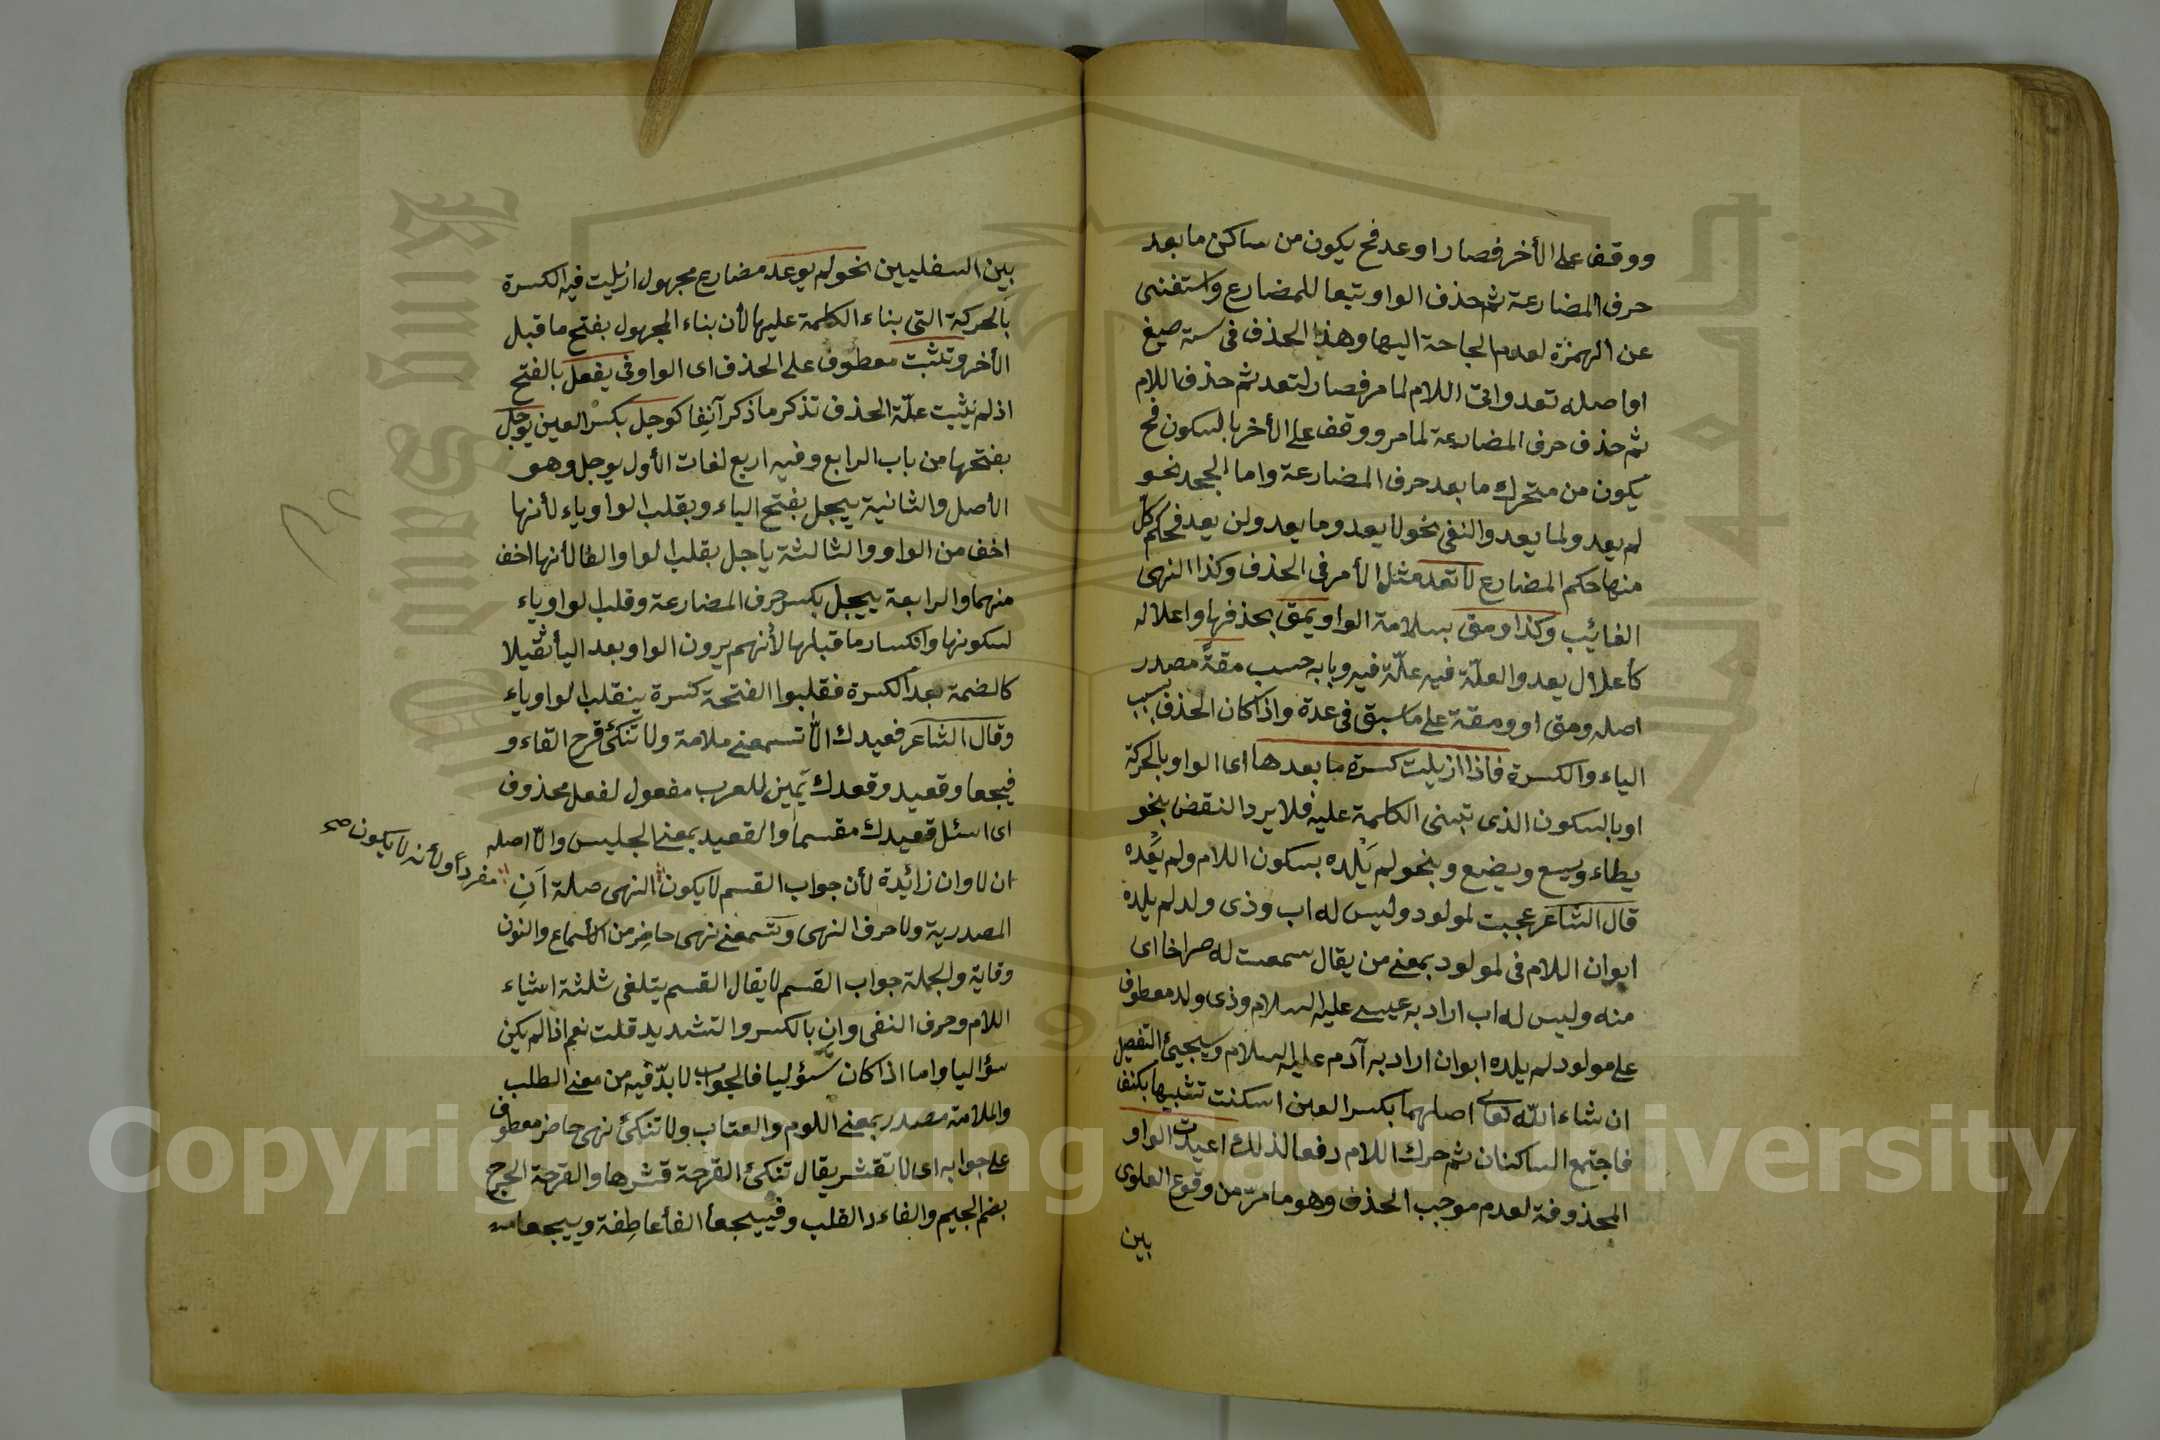 ووقف على الأخر فصار اوعد فح يكون من ساكن ما بعد
حرف المضارعة ثم حذف الواو تبعا للمضارع واستغنى
عن الهمزة لعدم الحاجة اليها وهذا الحذف فى ستة صيغ
او اصله تعد واتى اللام لما مر فصار لتعد ثم حذف اللام
ثم حذف حرف المضارعة لما مر ووقف على الأخر بالسكون فح
يكون من متحرك ما بعد حرف المضارعة واما الجحد نحو
لم يعد ولما يعد والنفى نحو لا يعد وما يعد ولن يعد فحكم كل
منها حكم المضارع لا تعد مثل الأمر فى الحذف وكذا النهى
الغائب وكذا ومق بسلامة الواو يمق بحذفها واعلاله
كأعلال يعد والعلّة فيه علّة فيه وبابه حسب مقةً مصدر
اصله ومق او ومقة على ما سبق فى عدة واذا كان الحذف بسبب
الياء والكسرة فاذا ازيلت كسرة ما بعدها اى الواو بالحركة
او بالسكون الذى تبنى الكلمة عليه فلا يرد النقض بنحو
يطاء ويسع ويضع وبنحو لم يَلْده بسكون اللام ولم يَعْده
قال الشاعر عجبت لمولود وليس له اب وذى ولد لم يلده
ابوان اللام فى لمولود بمعنى من يقال سمعت له صراخا اى
منه وليس له اب اراد به عيسى عليه السلام وذى ولد معطوف
على مولود لم يلده ابوان اراد به آدم عليه السلام وسيجئ التفصيل
ان شاء اللّه تعالى اصلهما بكسر العين اسكنت تشبيها بكتف
فاجتمع الساكنان ثم حرك اللام دفعا لذلك اعيدت الواو
المحذوفة لعدم موجب الحذف وهو ما مرّ من وقوع العلوى
بين
بين السفليين نحو لم يوعد مضارع مجهول ازيلت فيه الكسرة
بالحركة التى بناء الكلمة عليها لأن بناء المجهول بفتح ما قبل
الأخر وتثبت معطوف على الحذف اى الواو فى يفعل بالفتح
اذ لم يثبت علّة الحذف تذكر ما ذكر آنفا كوجل بكسر العين يوجل
بفتحها من باب الرابع وفيه اربع لغات الأول يوجل وهو
الأصل والثانية ييجل بفتح الياء وبقلب الواو ياء لأنها
اخف من الواو والثالثة ياجل بقلب الواو الفا لأنها اخف
منهما والرابعة ييجل بكسر حرف المضارعة وقلب الواو ياء
لسكونها وانكسار ما قبلها لأنهم يرون الواو بعد اليأ ثقيلا
كالضمة بعد الكسرة فقلبوا الفتحة كسرة ينقلب الواو ياء
وقال الشاعر قعيدك الّا تسمعنى ملامة ولا تنكئ قرح الفاء و
فيجعا وقعيد وقعدك يمين للعرب مفعول لفعل محذوف
اى اسئل قعيدك مقسما والقعيد بمعنى الجليس والّا اصله
ان لا وان زائدة لأن جواب القسم لا يكون النهى صلة اَنِ
مفردا ولأنه لا يكون صح
المصدرية ولا حرف النهى وتسمعنى نهى حاضر من الأسماع والنون
وقاية والجملة جواب القسم لا يقال القسم يتلقى ثلثة اشياء
اللام وحرف النفى وان بالكسر والتشديد قلت نعم اذا لم يكن
سؤاليا واما اذا كان سؤليا فالجواب لا بدّ فيه من معنى الطلب
والملامة مصدر بمعنى اللوم والعتاب ولا تنكئ نهى حاضر معطوف
على جوابه اى لا تقشر يقال تنكئ القرحة قشرها والقرحة الجرح
بضم الجيم والفاءد القلب وفييجعأ الفأ عاطفة وييجعا